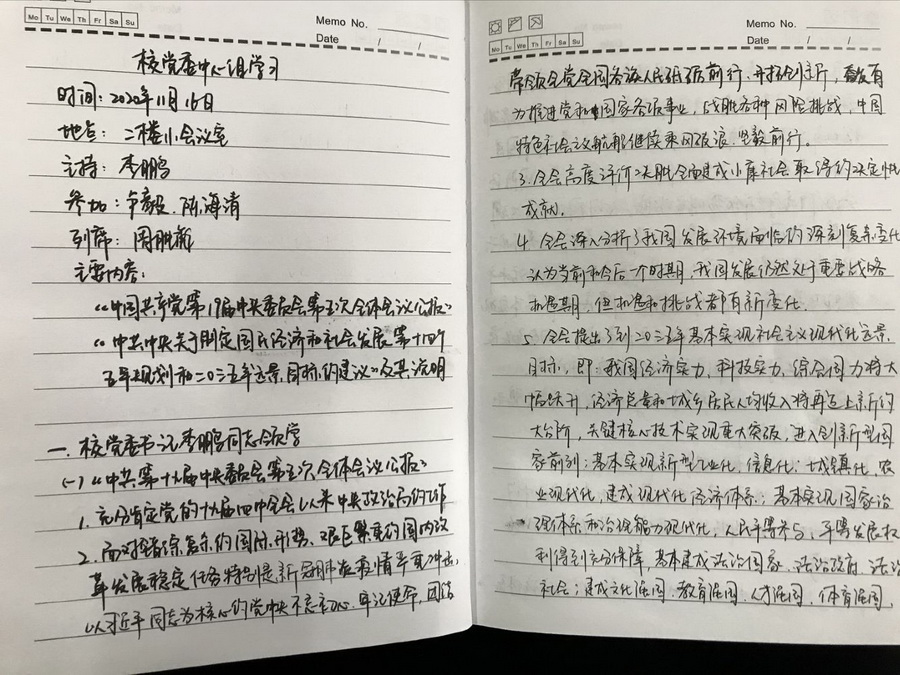 Mo Tu We Th Fr Sa Su
Memo No.
Date / /
校党委中心组学习
时间：2020年11月16日
地点：二楼小会议室
主持：李鹏鸟
参加：卢毅、陈海清
列席：周胜新
主要内容：
《中国共产党第19届中央委员会第五次全体会议公报》
《中共中央关于制定国民经济和社会发展第十四个
五年规划和二〇三五年远景目标的建议》及其说明
一、校党委书记李鹏鸟同志领学
(一)《中共第十九届中央委员会第五次全体会议公报》
1. 充分肯定党的十九届四中全会以来中央政治局的工作
2. 面对错综复杂的国际形势、艰巨繁重的国内改
革发展稳定任务特别是新冠肺炎疫情严重冲击，
以习近平同志为核心的党中央不忘初心、牢记使命，团结
Mo Tu We Th Fr Sa Su
Memo No.
Date / /
带领全党全国各族人民砥砺前行、开拓创新，奋发有
为推进党和国家各项事业，战胜各种风险挑战，中国
特色社会主义航船继续乘风破浪、坚毅前行。
3. 全会高度评价决胜全面建成小康社会取得的决定性
成就。
4. 全会深入分析了我国发展环境面临的深刻复杂变化
认为当前和今后一个时期，我国发展仍然处于重要战略
机遇期，但机遇和挑战都有新变化
5. 全会提出了到二〇三五年基本实现社会主义现代化远景
目标，即：我国经济实力、科技实力、综合国力将大
幅跃升，经济总量和城乡居民人均收入将再迈上新的
大台阶，关键核心技术实现重大突破，进入创新型国
家前列；基本实现新型工业化、信息化、城镇化、农
业现代化，建成现代化经济体系；基本实现国家治
理体系和治理能力现代化，人民平等参与、平等发展权
利得到充分保障，基本建成法治国家、法治政府、法治
社会；建成文化强国、教育强国、人才强国、体育强国、